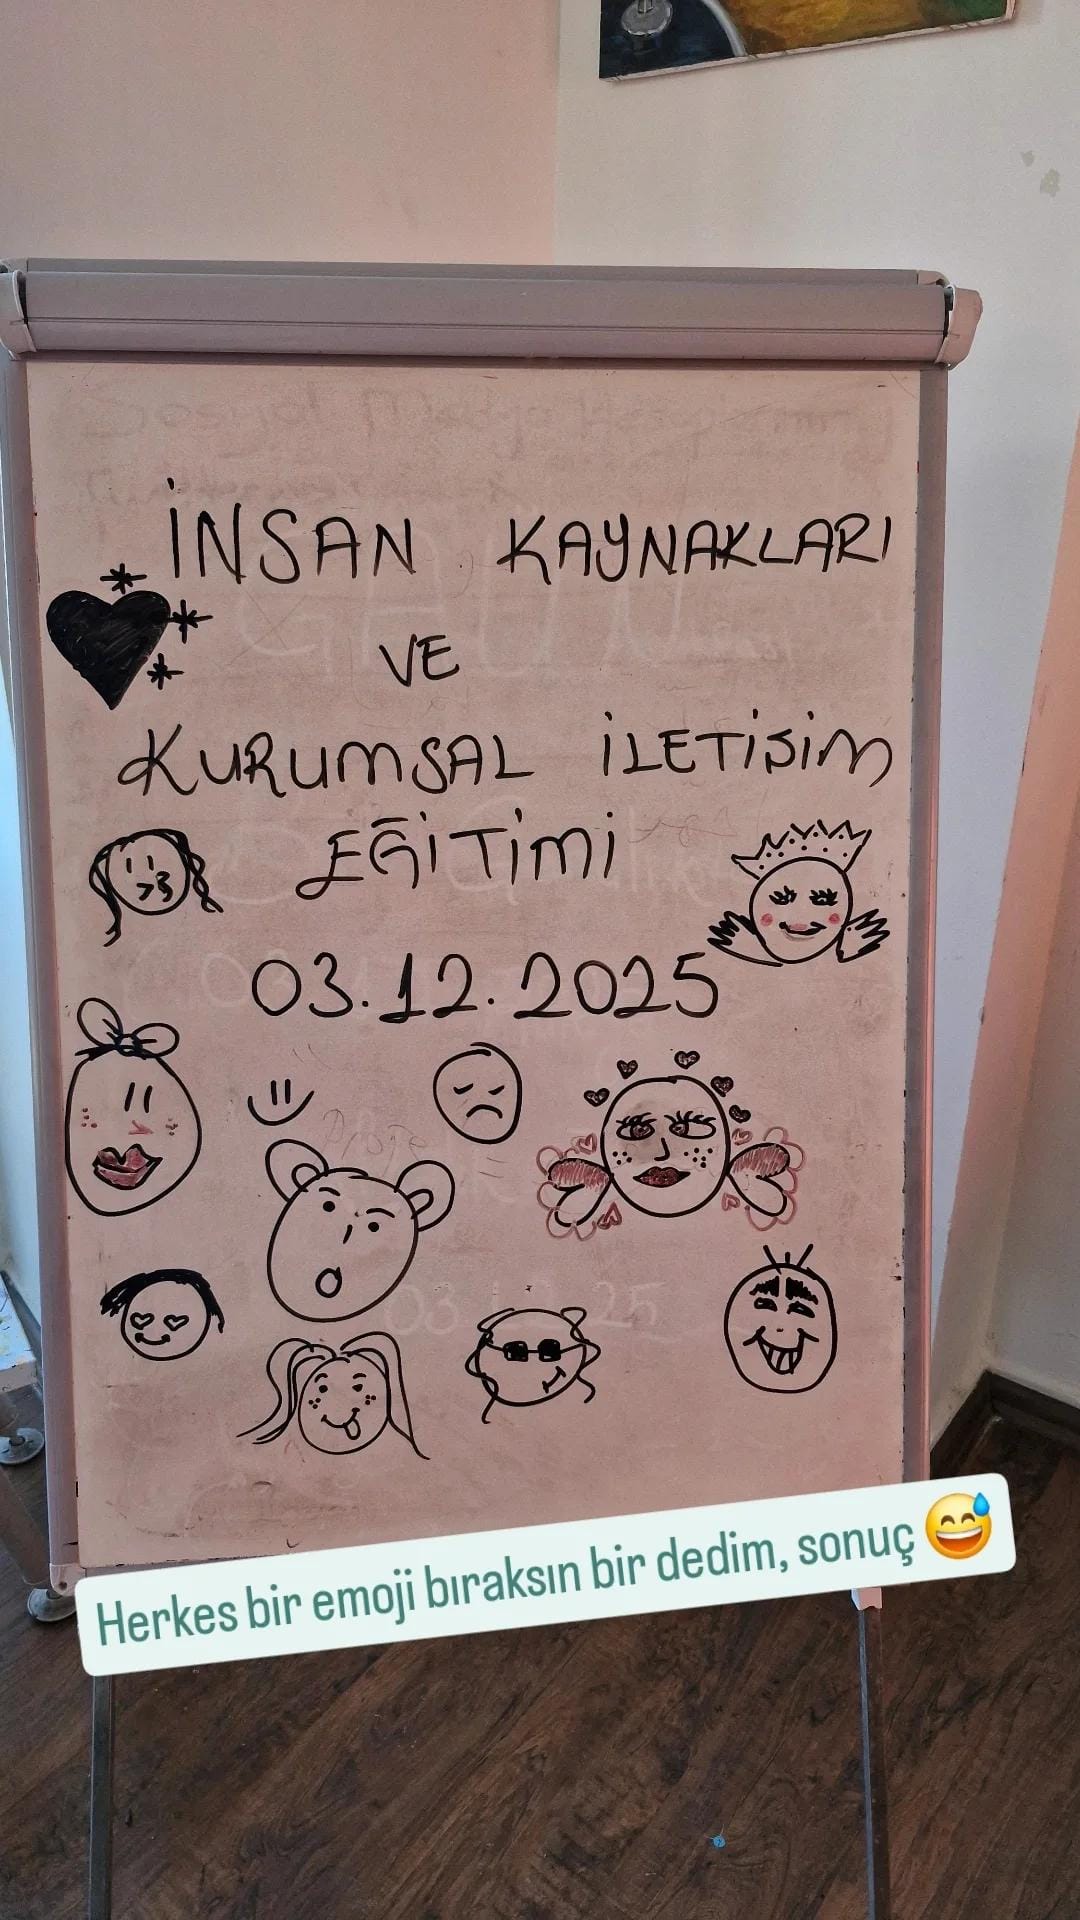 İNSAN KAYNAKLARI
VE
KURUMSAL İLETİŞİM
EĞİTİMİ
03.12.2025
03.12.25
Herkes bir emoji bıraksın bir dedim, sonuç 😅